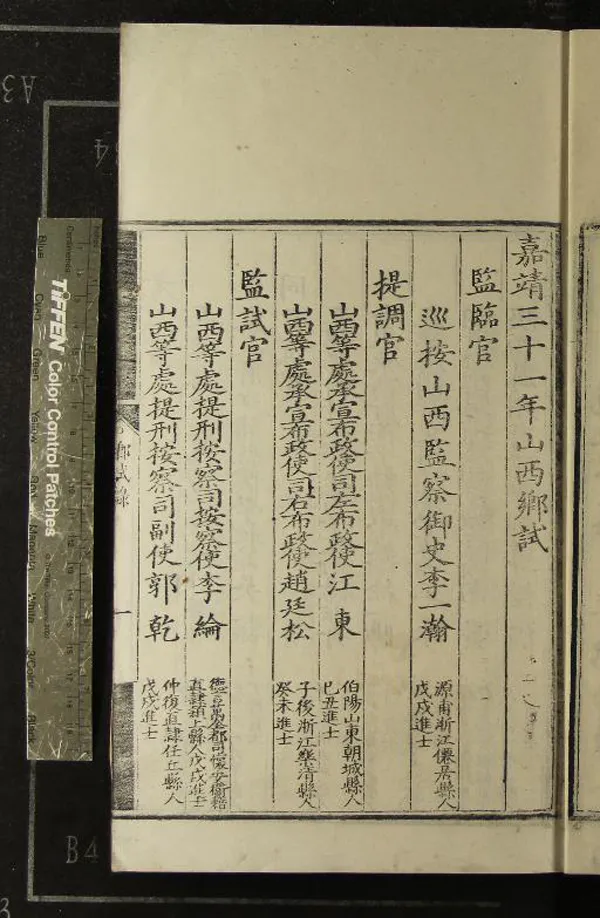 嘉靖三十一年山西鄉試
監臨官
巡按山西監察御史李一瀚
源甫浙江僊居縣人
戊戌進士
提調官
山西等處承宣布政使司左布政使江東
伯陽山東朝城縣人
己丑進士
山西等處承宣布政使司右布政使趙廷松
子後浙江樂清縣人
癸未進士
監試官
山西等處提刑按察司按察使李綸
德言萬全都司懷安衛籍
直隸潁上縣人戊戌進士
山西等處提刑按察司副使郭乾
仲復直隸任丘縣人
戊戌進士
鄉試錄
一
TIFFEN Color Control Patches
Blue
Green
Yellow
Red
Magenta
White
3/Color
Black
Centimetres
A3
B4